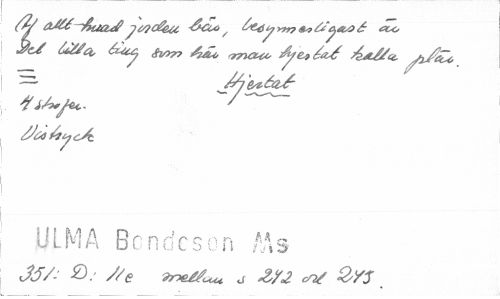 Af allt hvad jorden bär, besynnerligast är
Det lilla ting som här man hjertat kalla plär.
Hjertat
4 strofer.
Vistryck
ULMA Bondeson Ms
351: D: 11c mellan s 242 och 243.